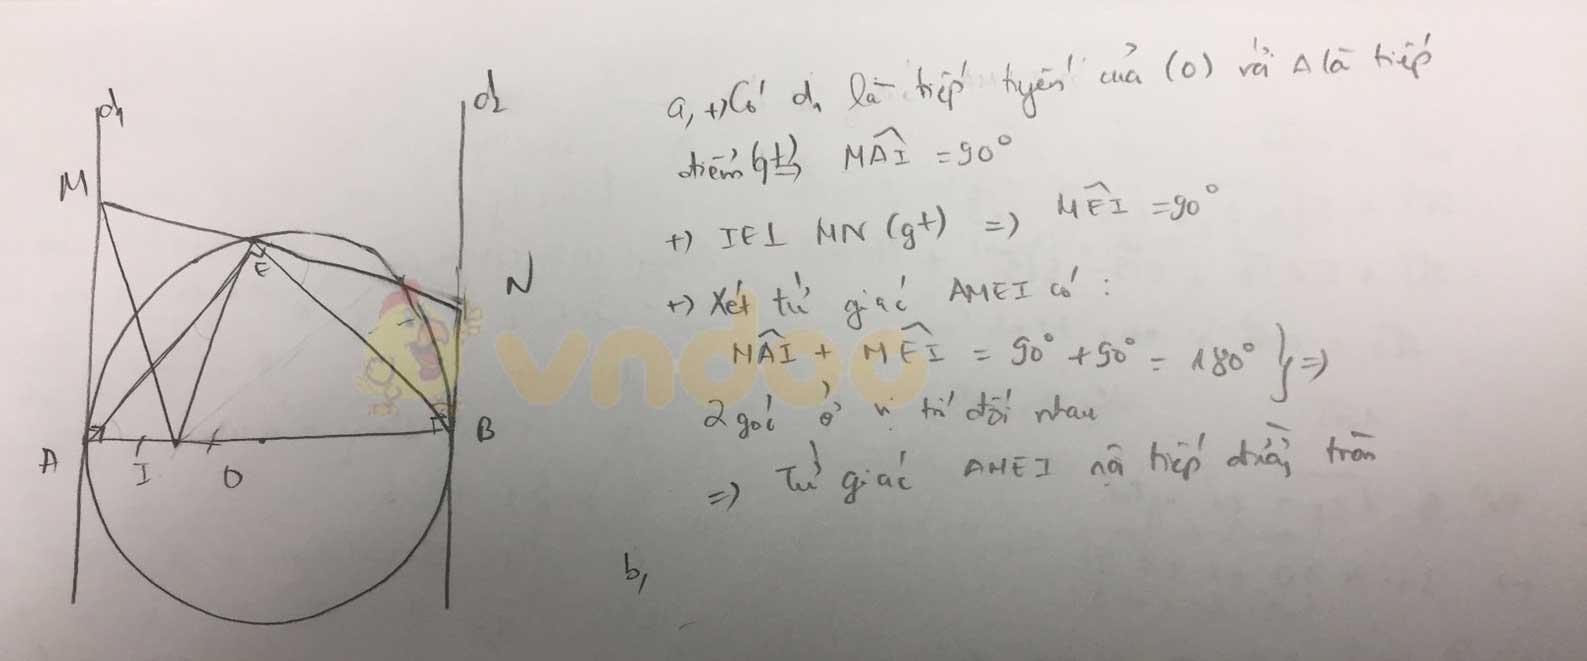 d₁
d₂
M
E
N
A
I
O
B
a, +) Có d₁ là tiếp tuyến của (O) và A là tiếp
điểm (gt) => MAI = 90°
+) IE⊥ MN (gt) => MEI = 90°
+) Xét tứ giác AMEI có :
MAI + MEI = 90° + 90° = 180° } =>
2 góc ở vị trí đối nhau
=> Tứ giác AMEI nội tiếp đường tròn
b,
vndoo